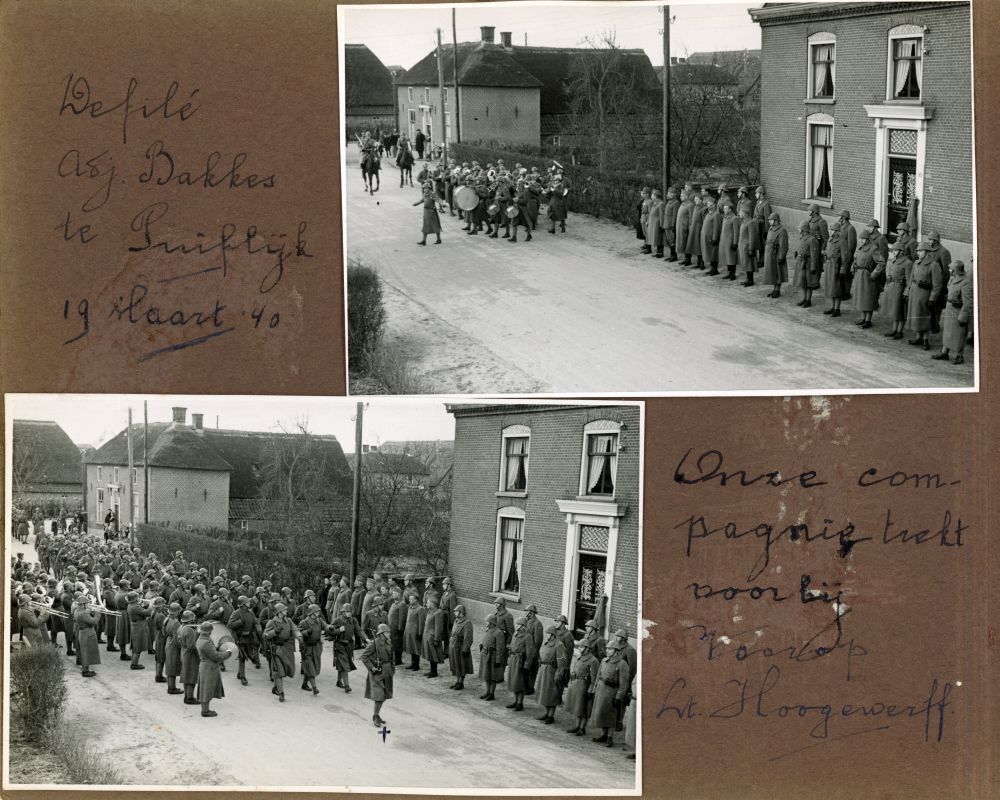 Defilé
Adj. Bakkes
te Puiflijk
19 Maart '40
Onze com-
pagnie trekt
voorbij
Voorop
Lt. Hoogewerff.